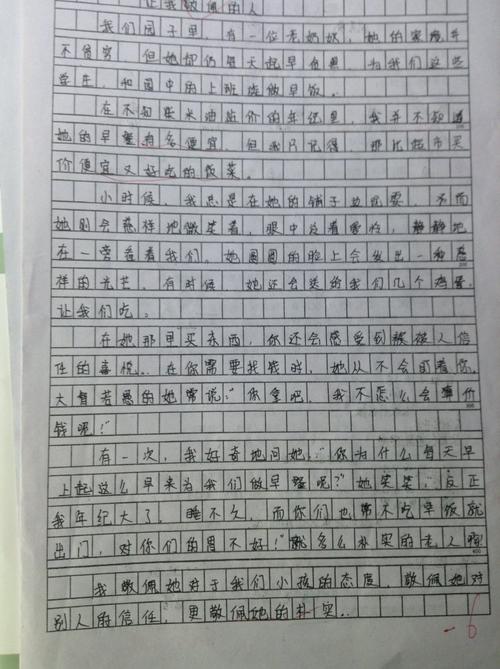 让我敬佩的人
我们园子里,有一位老奶奶,她的家庭并
不贫穷,但她却仍每天起早贪黑,为我们这些
学生,和园中的上班族做早饭。
在不知柴米油盐价的年纪里,我并不知道
她的早餐有多便宜,但我只记得,那比超市买
价便宜又好吃的饭菜。
小时候,我总是在她的铺子边玩耍,而
她则会慈祥地微笑着,眼中没着,静静地
在一旁看着我们。她圆圆的脸上会发出一种慈
祥的光芒。有时候,她还会送给我们几个鸡蛋,
让我们吃。
在她那里买东西,你还会感受到被人信
任的喜悦…在你需要找钱时,她从不会盯着你,
大智若愚的她常说:“你拿吧,我不怎么会算价
钱呢!”
有一次,我好奇地问她:“你为什么每天早
上起这么早来为我们做早餐呢?”她笑笑:“反正
我年纪大了,睡不久,而你们也常不吃早饭就
出门,对你们的胃不好!”多么朴实的老人啊
我敬佩她对于我们小孩的态度,敬佩她对
别人的信任,更敬佩她的朴实。
-6